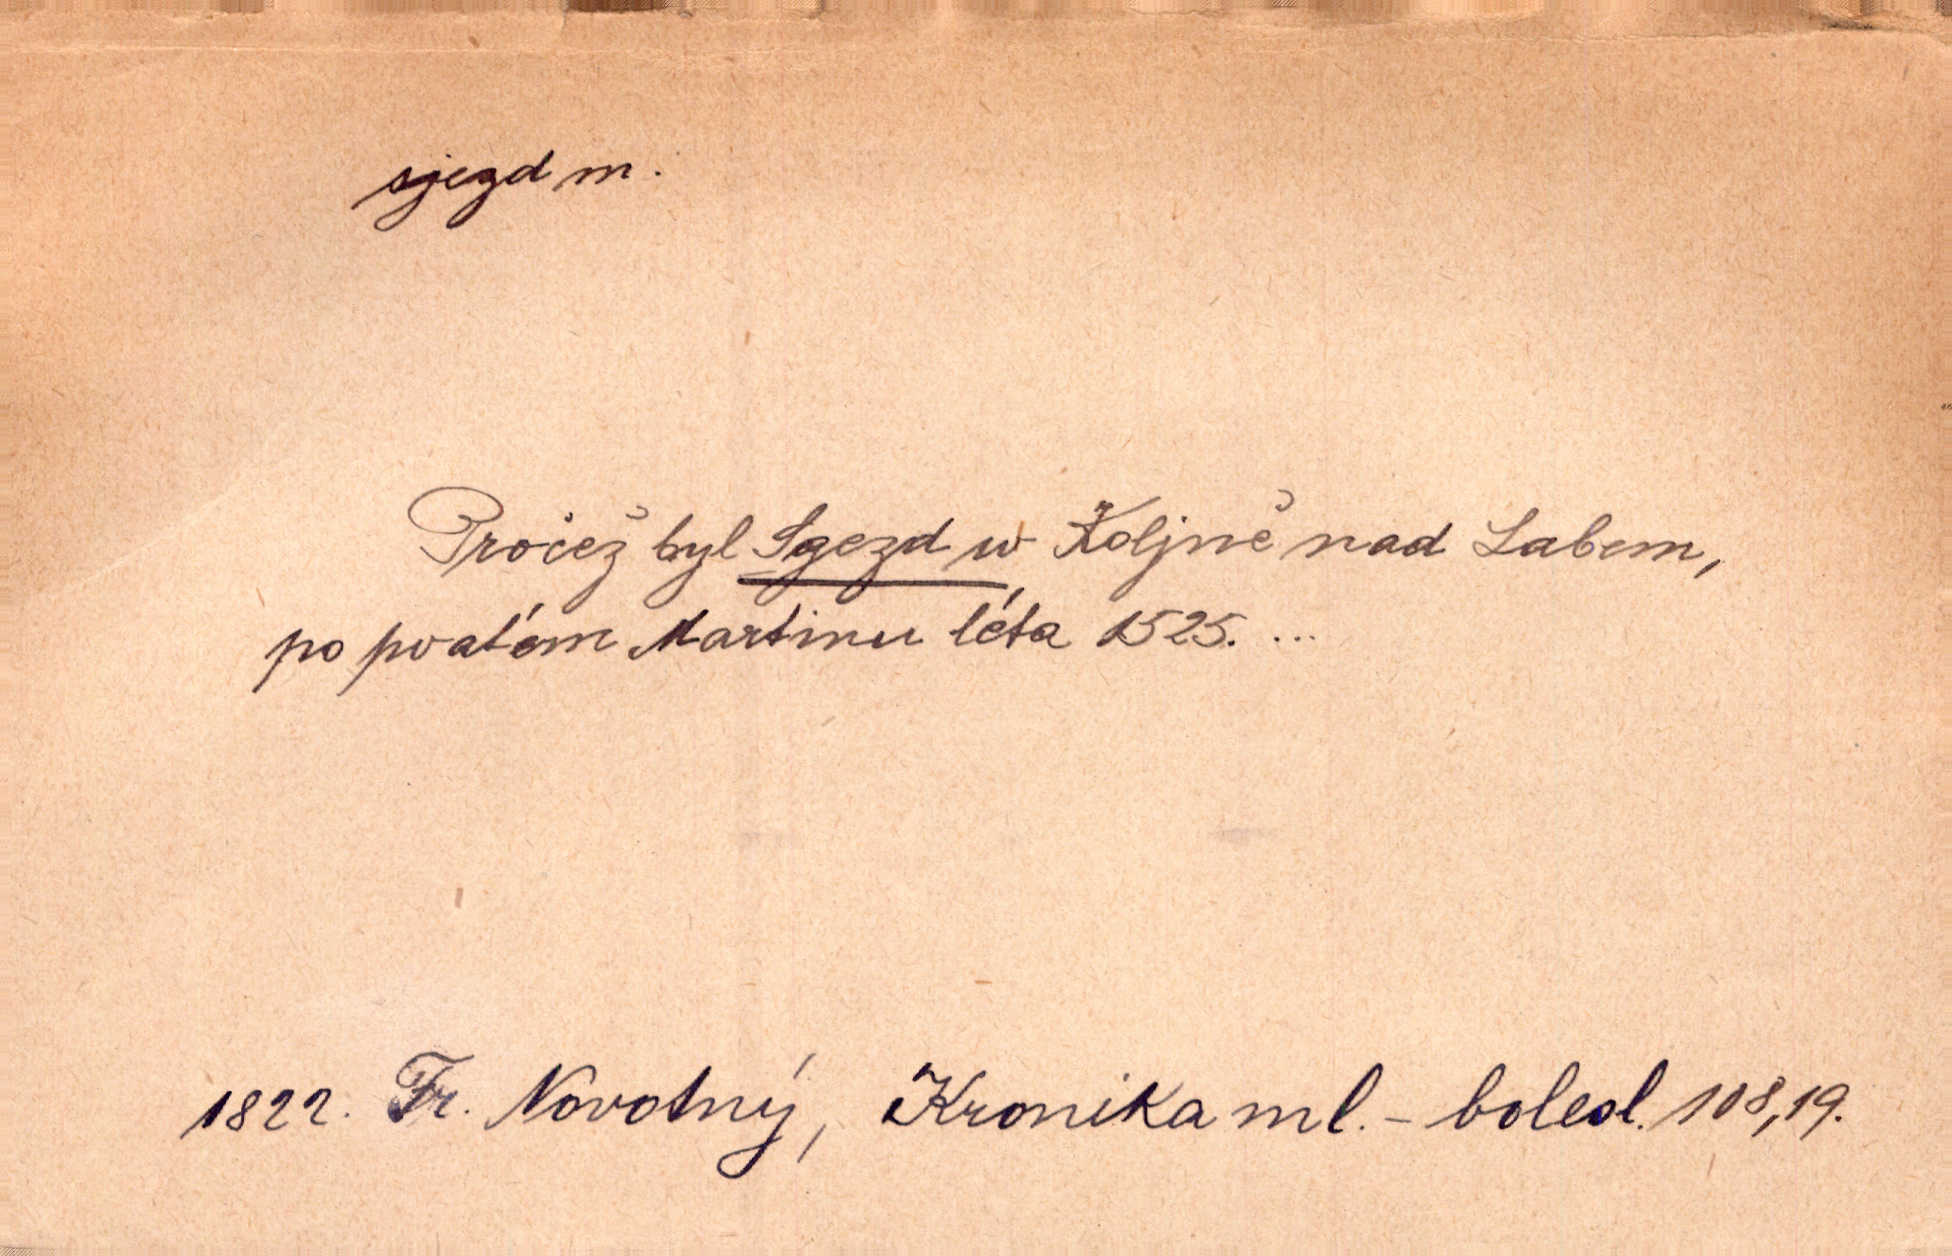 sjezd m.
Pročež byl Sgezd w Koljně nad Labem,
po svatém Martinu léta 1525. ...
1822. Fr. Novotný, Kronika ml. - bolesl. 108,19.